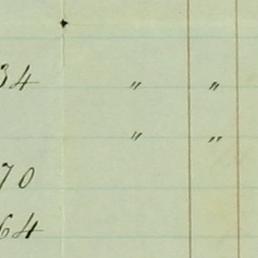 34 " "
" "
70
64